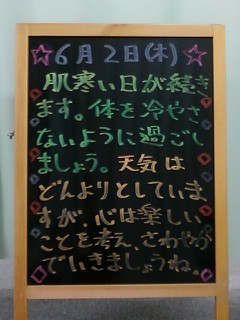 ☆6月2日(木)☆
肌寒い日が続き
ます。体を冷やさ
ないように過ごし
ましょう。天気は
どんよりとしていま
すが、心は楽しい
ことを考え、さわやか
でいきましょうね。